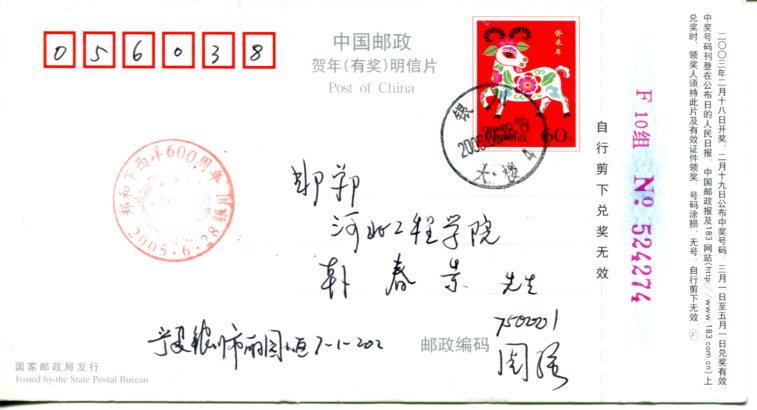 056038
中国邮政
贺年(有奖)明信片
Post of China
癸未年
60
银川
大楼 4
郑和下西洋600周年
2005.6.28
邯郸
河北工程学院
韩春景 先生
宁夏银川市丽园 7-1-202
邮政编码
750001
国家邮政局发行
Issued by the State Postal Bureau
自行剪下兑奖无效
F 10组 No 524274
二○○三年二月十八日开奖,二月十九日公布中奖号码,三月一日至五月一日兑奖有效
中奖号码刊登在公布日的人民日报、中国邮政报及183网站(http://www.183.com.cn)上,
兑奖时,领奖人须持此片及有效证件领奖,号码涂损、无号、自行剪下无效